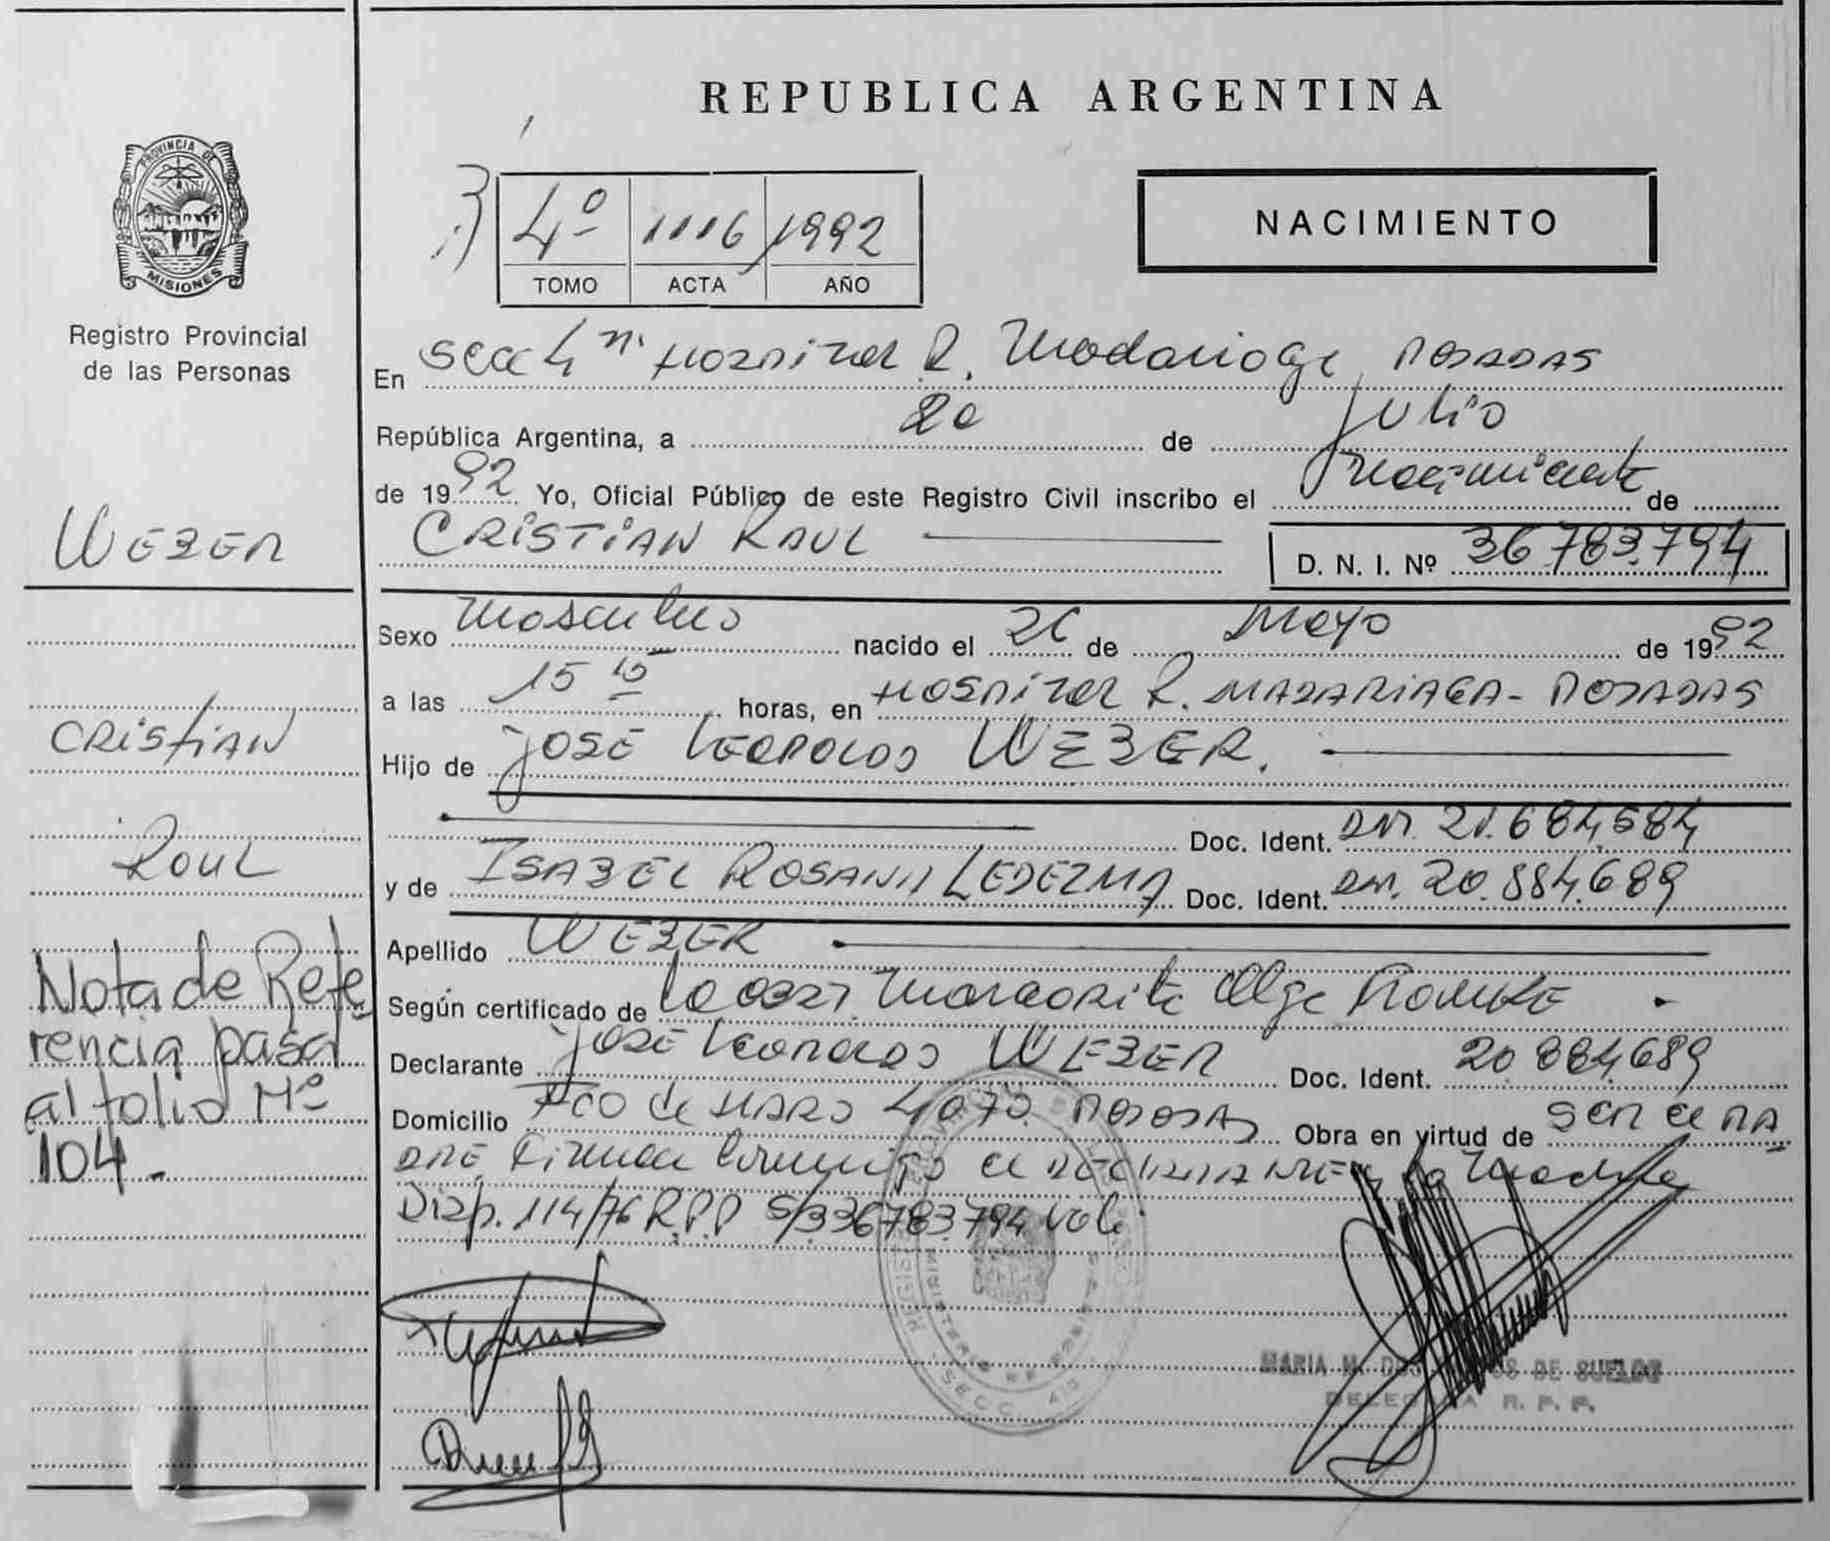 REPUBLICA ARGENTINA
PROVINCIA DE
MISIONES
Registro Provincial
de las Personas
4º 1116 1992
TOMO ACTA AÑO
NACIMIENTO
En Secc 4ª Hospital R. Madariaga Posadas
República Argentina, a 20 de Julio
de 1992 Yo, Oficial Público de este Registro Civil inscribo el Nacimiento de
CRISTIAN RAUL
D. N. I. Nº 36783.794
WEBER
CRISTIAN
RAUL
Nota de Refe
rencia pasa
al folio Nº
104.-
Sexo Masculino nacido el 26 de Mayo de 1992
a las 15 15 horas, en Hospital R. MADARIAGA - POSADAS
Hijo de José Leopoldo WEBER.
Doc. Ident. DNI. 21.684.584
y de ISABEL ROSANA LEDEZMA Doc. Ident. DNI. 20.884.689
Apellido WEBER
Según certificado de la Margarita Olga
Declarante José Leopoldo WEBER Doc. Ident. 20.884.689
Domicilio Fco de HARO 4070 Posadas Obra en virtud de ser el PA
DRE Firman conmigo el DECLARANTE y la Madre
Disp. 114/76 R.P.P S/B 36783.794 Vale
MARIA M. DOS DE SUELDO
DELEGADA R. P. P.
SECC. 4ta